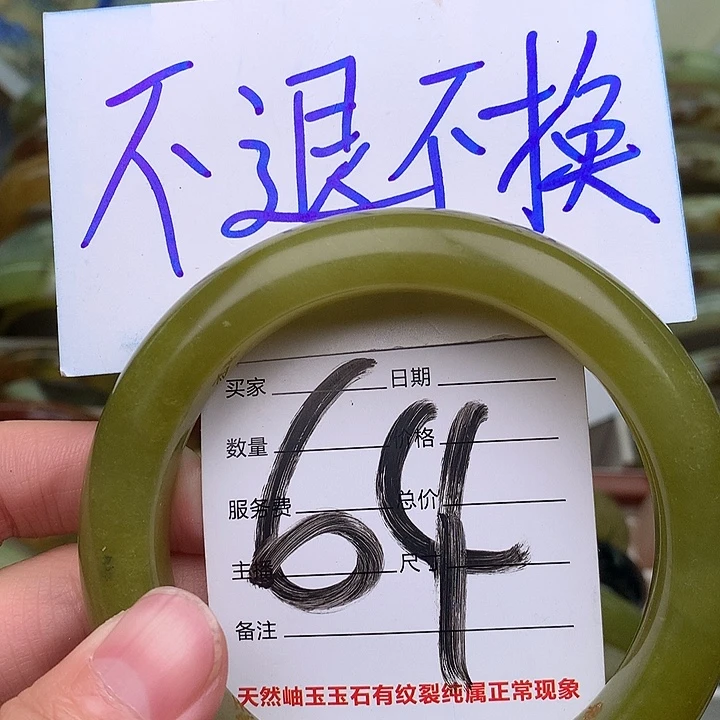 不退不换
买家 日期
64
数量 价格
服务费 总价
主播 尺寸
备注
天然岫玉玉石有纹裂纯属正常现象